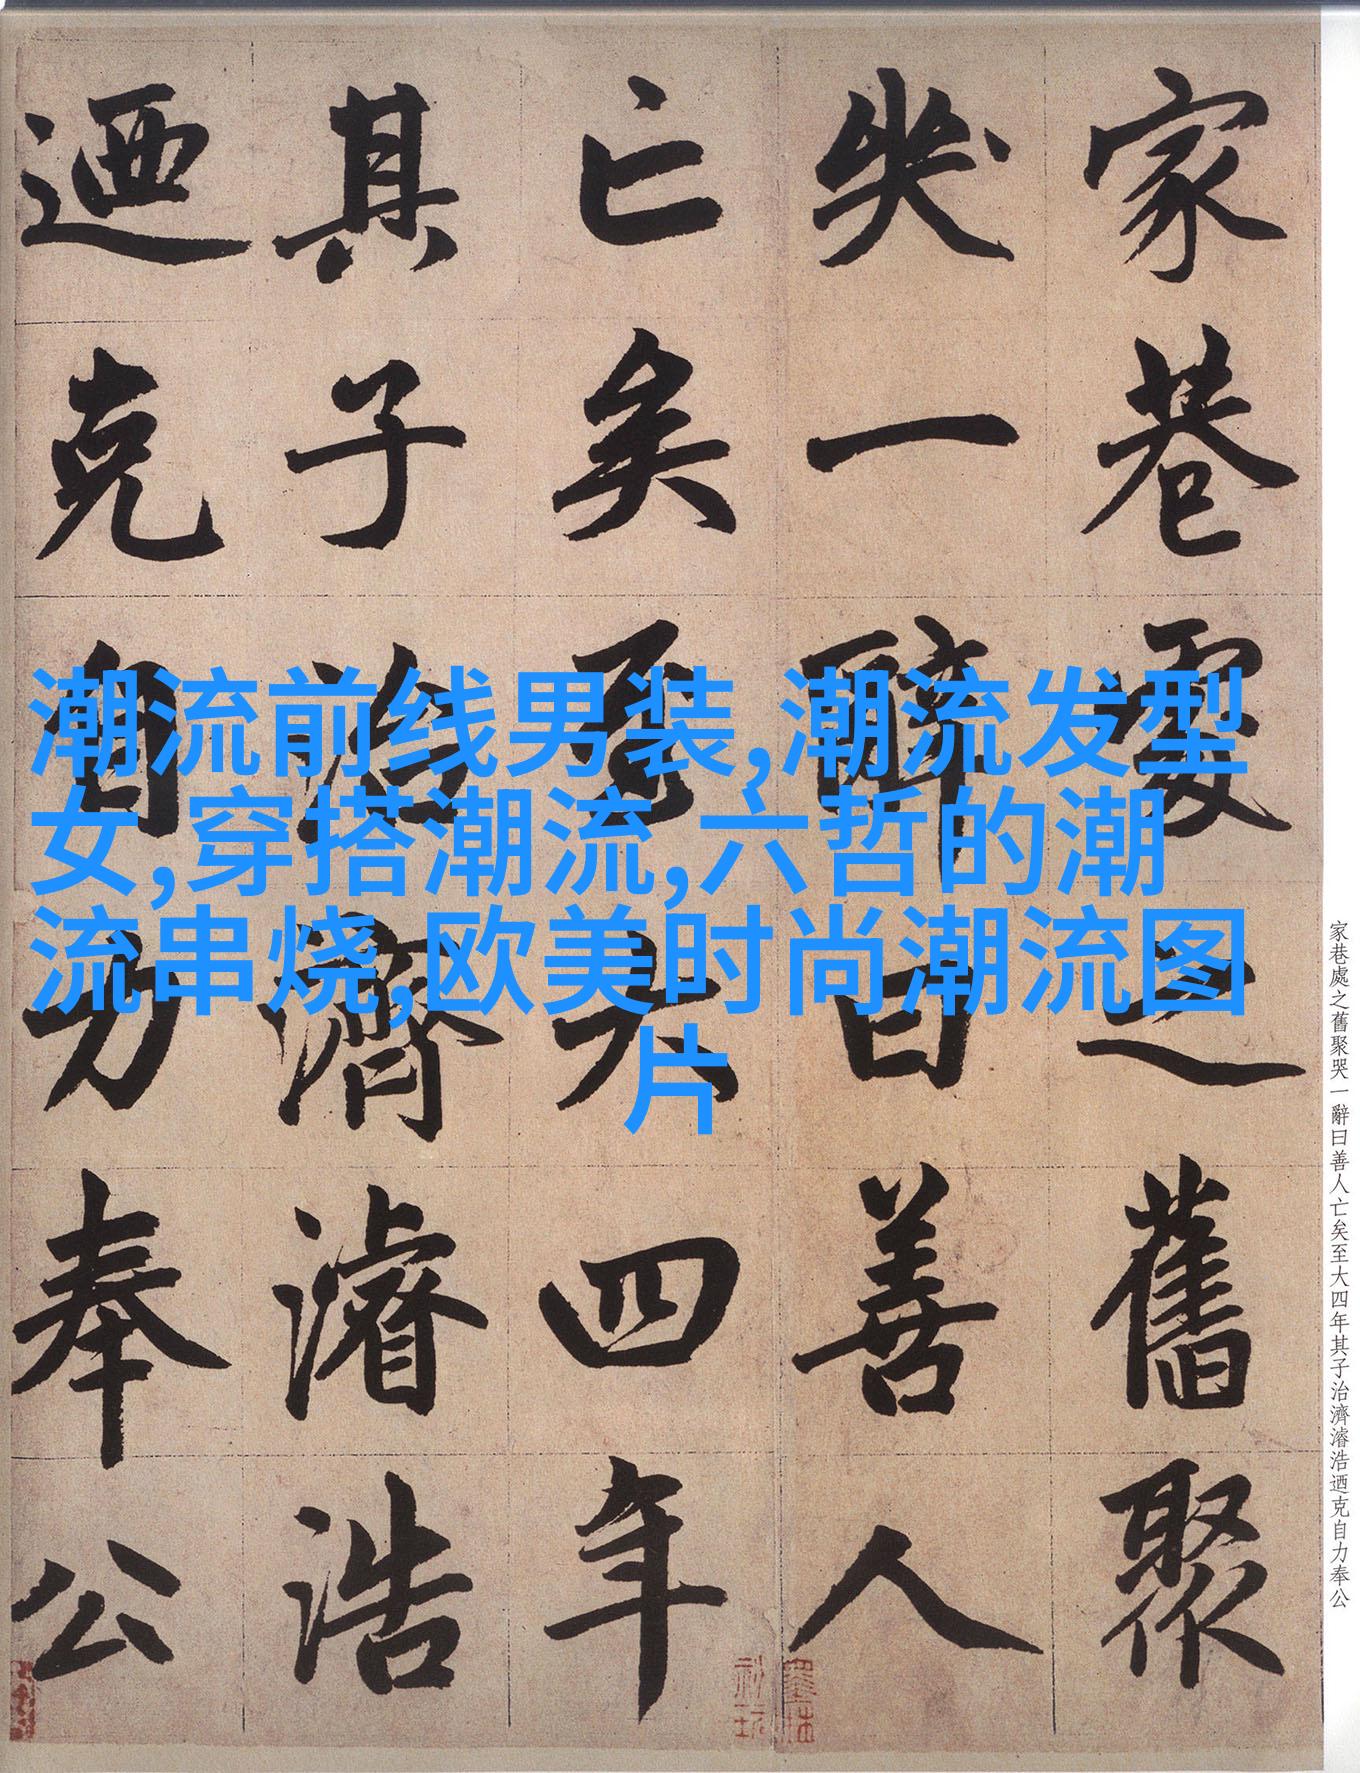 家巷處之舊聚
哭一辭曰善人
亡矣至大四年
其子治濟濬浩
迺克自力奉公
潮流前线男装,潮流发型
女,穿搭潮流,六哲的潮
流串烧,欧美时尚潮流图
片
家巷處之舊聚哭一辭曰善人亡矣至大四年其子治濟濬浩迺克自力奉公
墨林
秘玩